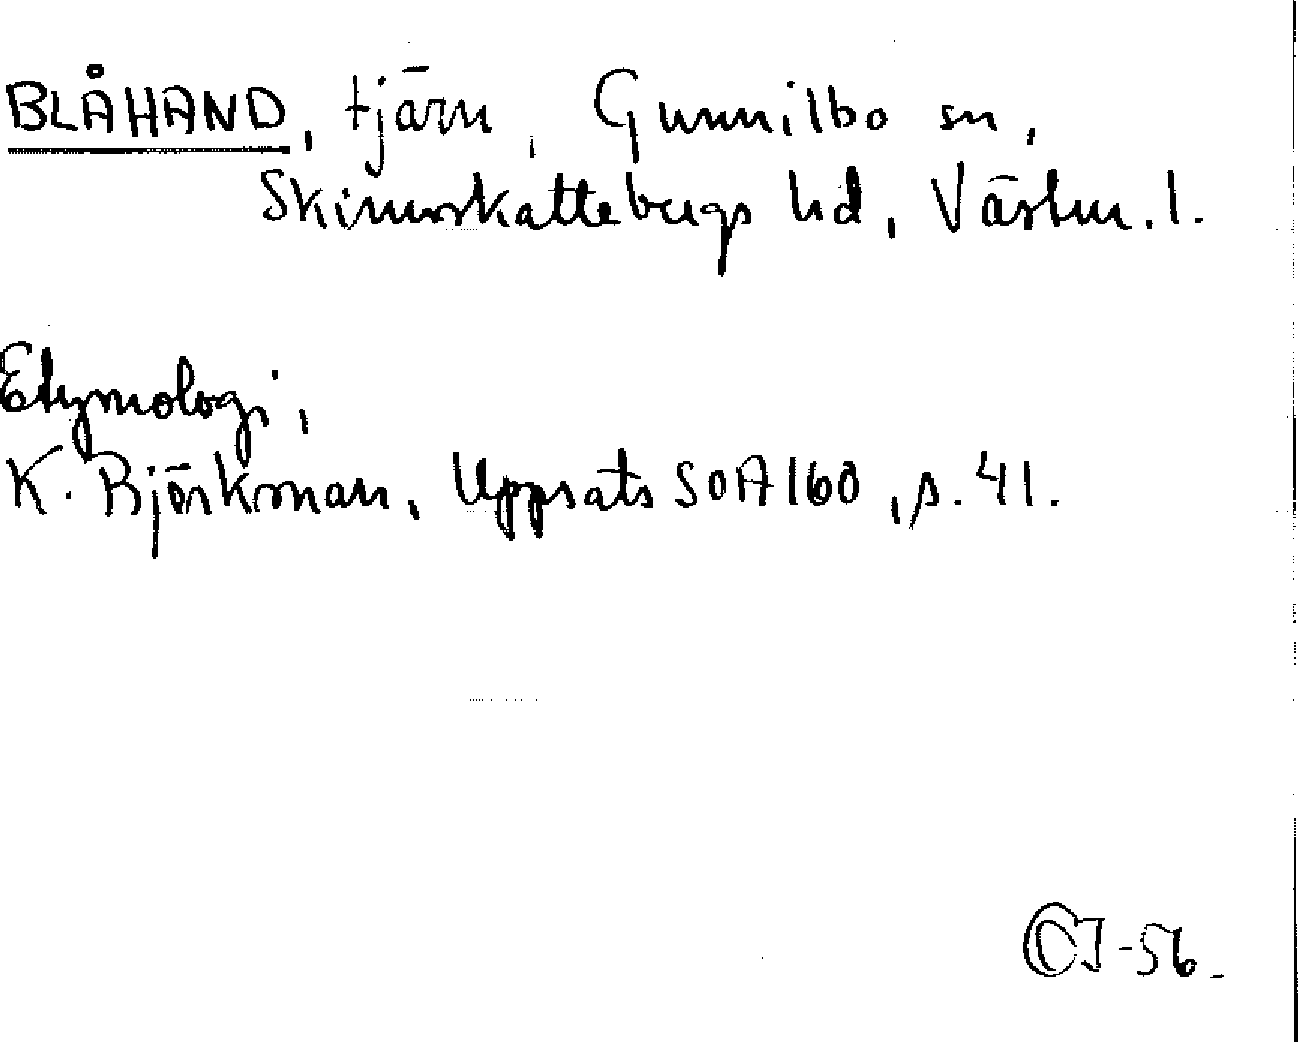 BLÅHAND, tjärn, Gunnilbo sn,
Skinnskattebergs hd, Västm. l.
Etymologi,
K. Björkman, Uppsats SOA 160, s. 41.
CJ-56.